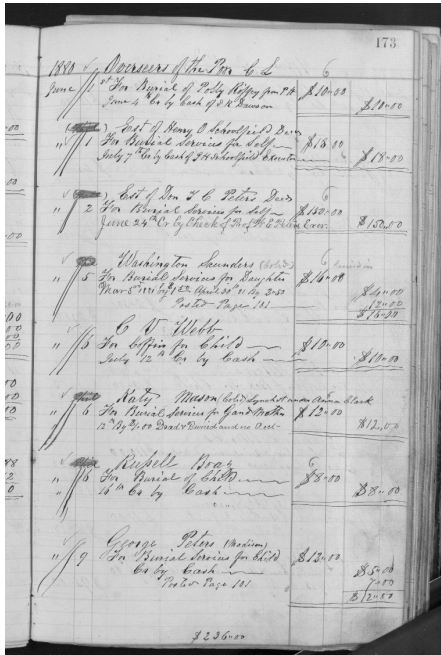 173
1880 Overseers of the Poor C L 6
June 1st For Burial of Polly from P H $10.00
June 4th Cr by Cash of S R Dawson $10.00
Est of Henry O Schoolfield Decs
" 1 For Burial Services for Self $18.00
July 7th Cr by Cash of J H Schoolfield Executor $18.00
Est of Don T. C. Peters Decs 6
" 2 For Burial Services for Self $150.00
June 24th Cr by Check of Exer. $150.00
Washington Saunders (Cold) 6
" 5 For Burial Services for Daughter $16.00
Mar 5th 1881 by April 30th 81 By 2.50 $4.00
Posted Page 181 12.00
$16.00
C V Webb
" 6 For Coffin for Child $10.00
July 12th Cr by Cash $10.00
Katy Mason (Cold) under Anna Clark
" 6 For Burial Services for Gand Mother $12.00
12th By $1.00 Dead & Buried and no Acct $12.00
Russell Boaz 6
" 6 For Burial of Child $8.00
16th Cr by Cash $8.00
George Peters (Madison)
" 9 For Burial Services for Child $12.00
Cr by Cash $5.00
Posted Page 181 7.00
$12.00
$236.00